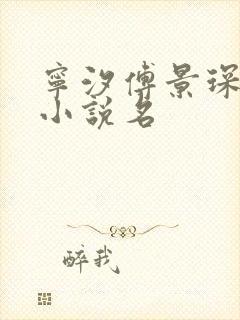 寧汐傅景琛
小說名
醉我